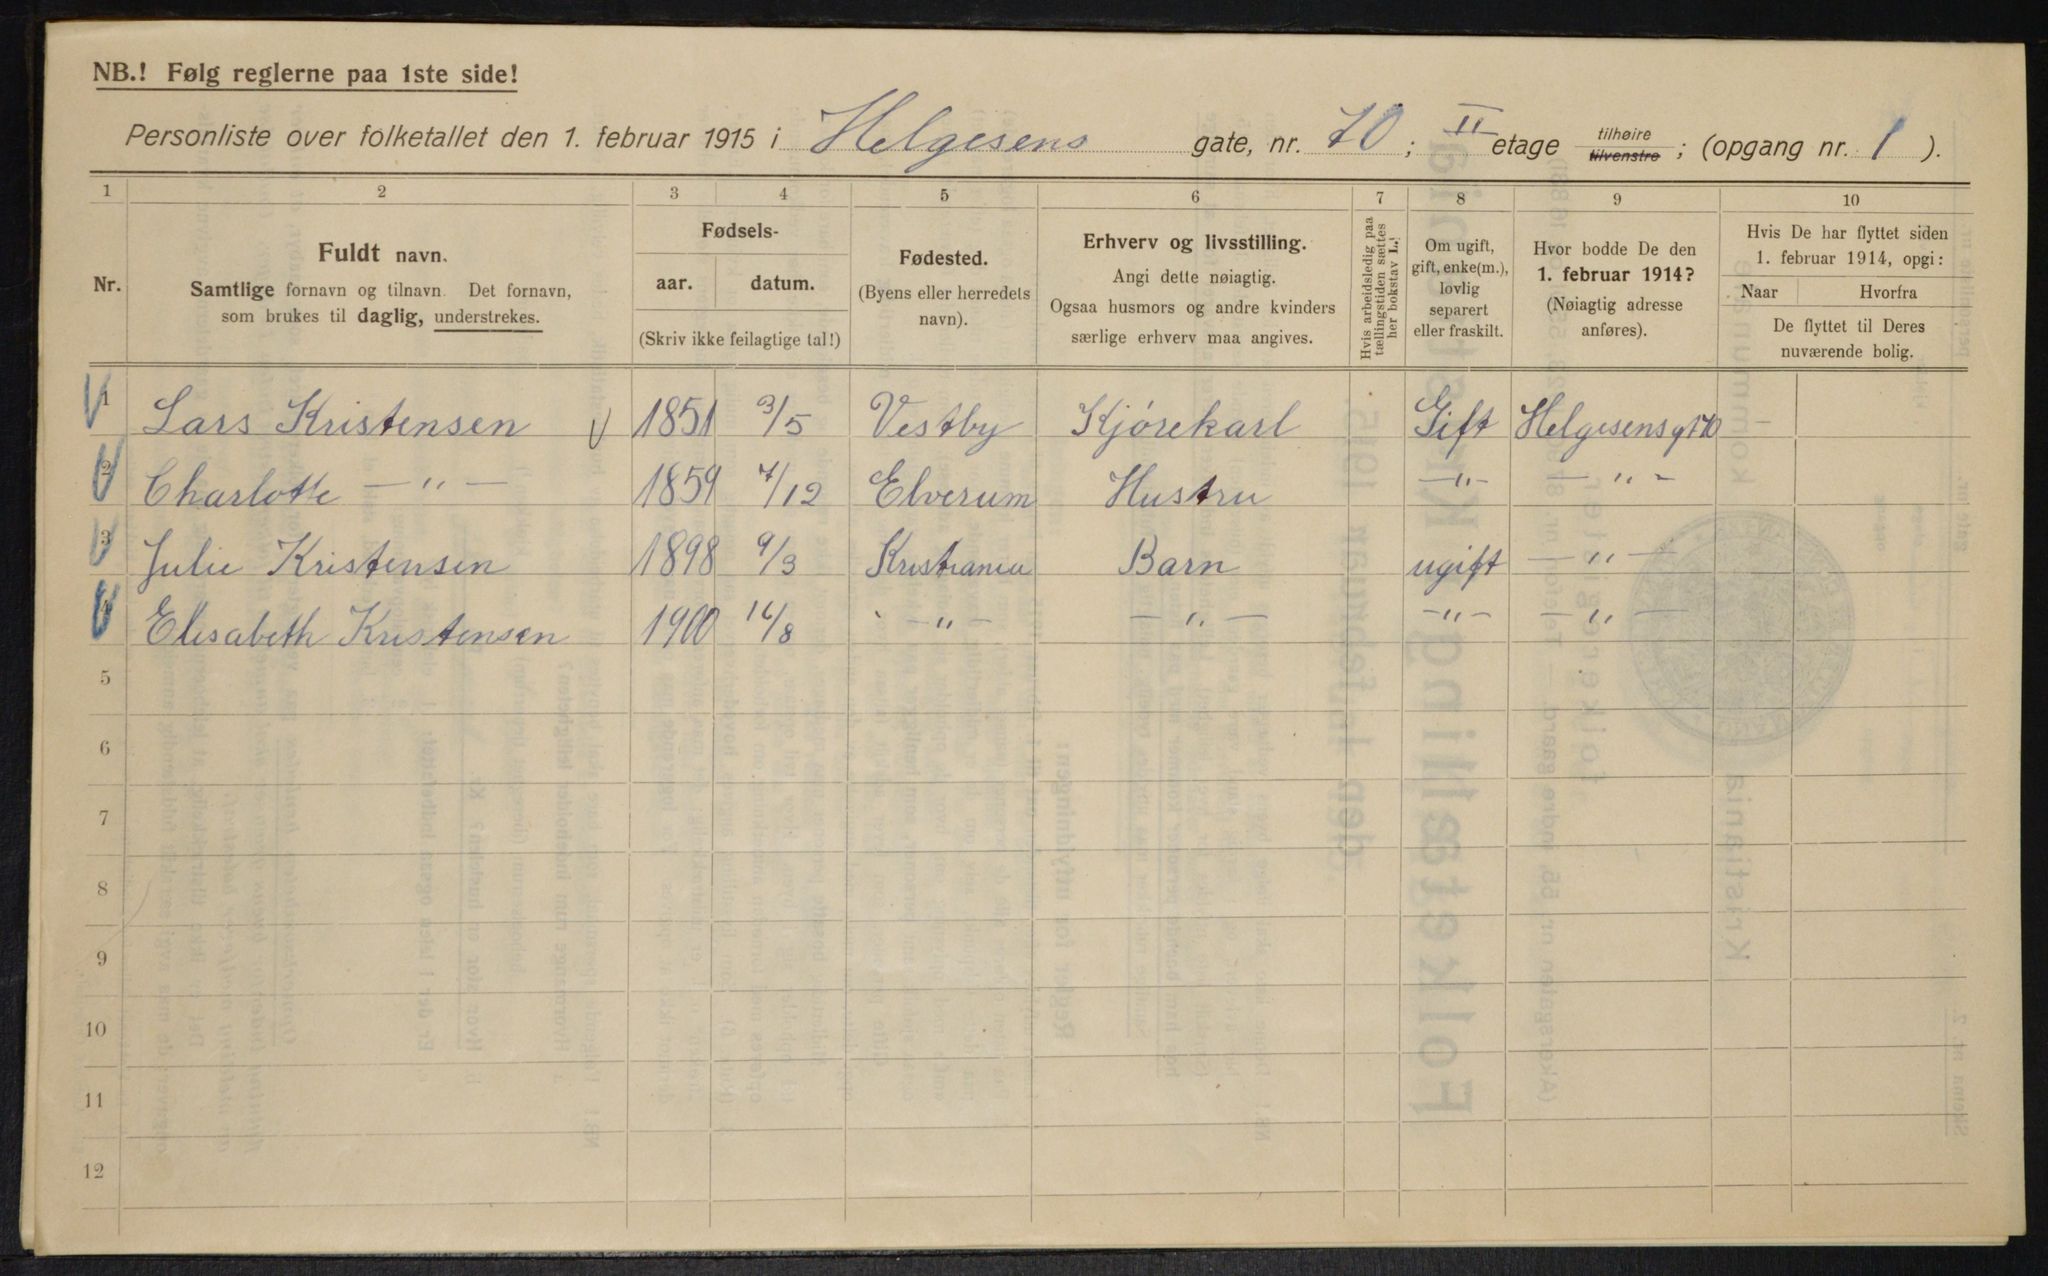 NB.! Følg reglerne paa 1ste side!
Personliste over folketallet den 1. februar 1915 i Helgesens gate, nr. 70 ; II etage tilhøire tilvenstre ; (opgang nr. 1 ).
1 2 3 4 5 6 7 8 9 10
Nr.
Fuldt navn.
Samtlige fornavn og tilnavn. Det fornavn,
som brukes til daglig, understrekes.
Fødsels-
aar. datum.
(Skriv ikke feilagtige tal!)
Fødested.
(Byens eller herredets
navn).
Erhverv og livsstilling.
Angi dette nøiagtig.
Ogsaa husmors og andre kvinders
særlige erhverv maa angives.
Hvis arbeidsledig paa
tællingstiden sættes
her bokstav L.!
Om ugift,
gift, enke(m.),
lovlig
separert
eller fraskilt.
Hvor bodde De den
1. februar 1914?
(Nøiagtig adresse
anføres).
Hvis De har flyttet siden
1. februar 1914, opgi:
Naar Hvorfra
De flyttet til Deres
nuværende bolig.
1 Lars Kristensen 1851 3/5 Vestby Kjørekarl Gift Helgesensgt 70
2 Charlotte — " — 1859 7/12 Elverum Hustru — " — — " —
3 Julie Kristensen 1898 9/3 Kristiania Barn ugift — " —
4 Elisabeth Kristensen 1900 16/8 — " — — " — — " — — " —
5
6
7
8
9
10
11
12